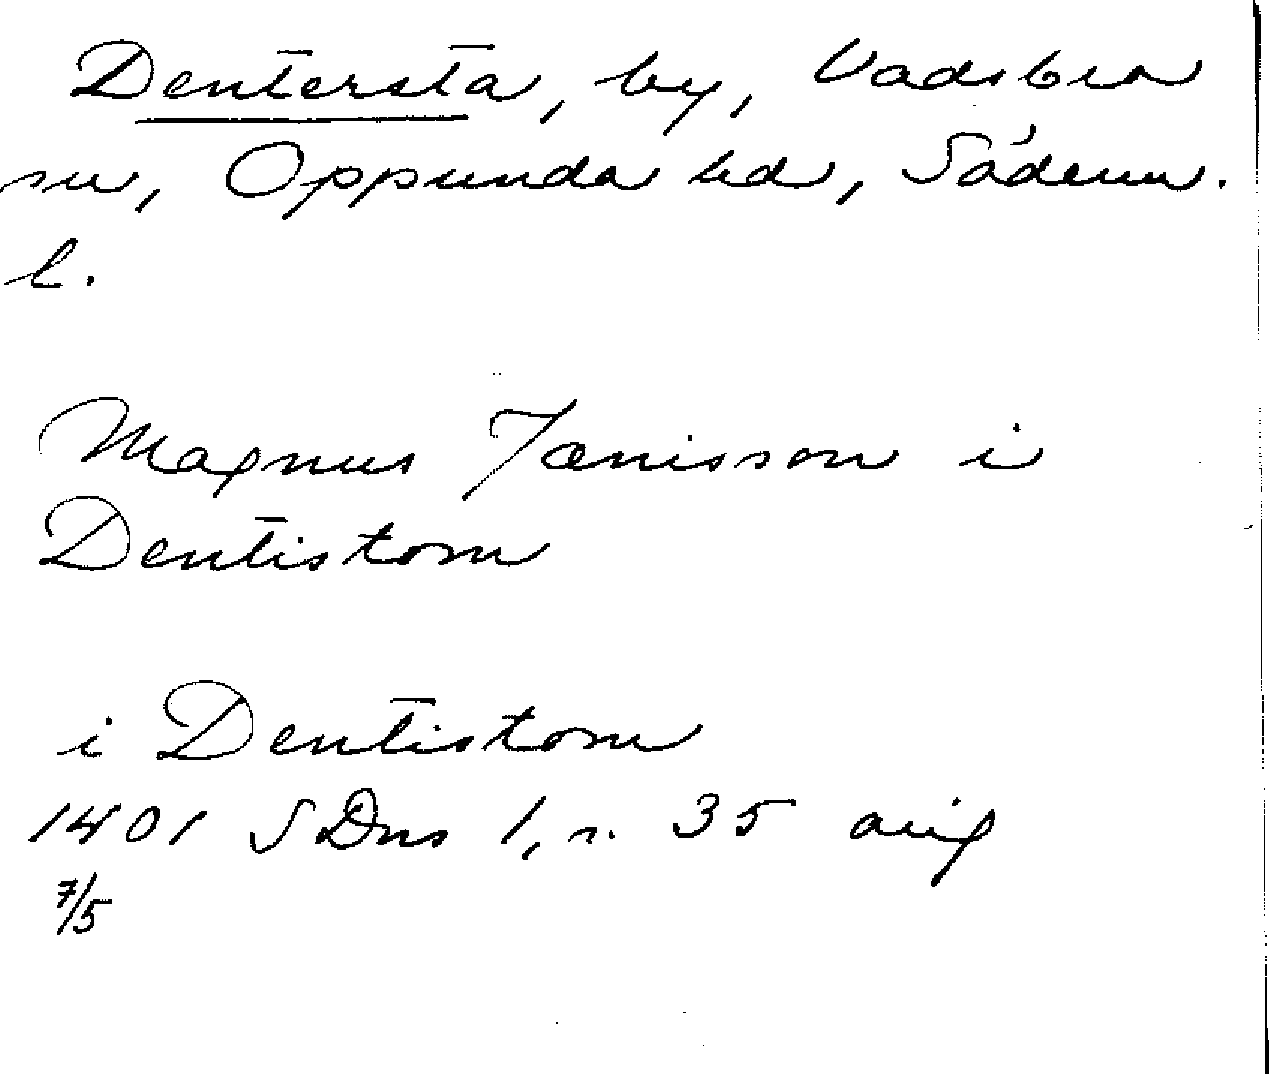 Dentersta, by, Vadsbro
sn, Oppunda hd, Söderm.
l.
Magnus Jænisson i
Dentistom
i Dentistom
1401 SDns 1, n. 35 orig
7/5